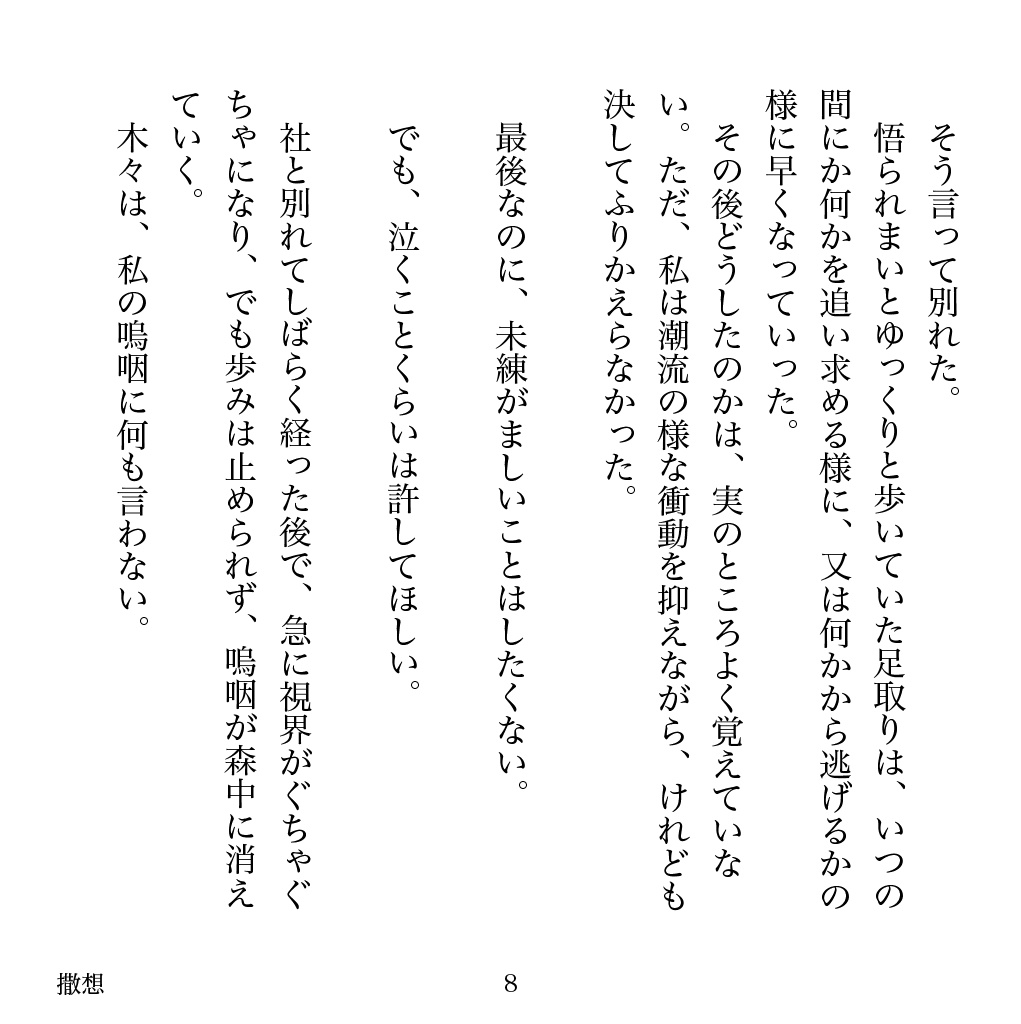 そう言って別れた。
悟られまいとゆっくりと歩いていた足取りは、いつの
間にか何かを追い求める様に、又は何かから逃げるかの
様に早くなっていった。
その後どうしたのかは、実のところよく覚えていな
い。ただ、私は潮流の様な衝動を抑えながら、けれども
決してふりかえらなかった。
最後なのに、未練がましいことはしたくない。
でも、泣くことくらいは許してほしい。
社と別れてしばらく経った後で、急に視界がぐちゃぐ
ちゃになり、でも歩みは止められず、嗚咽が森中に消え
ていく。
木々は、私の嗚咽に何も言わない。
8
撒想